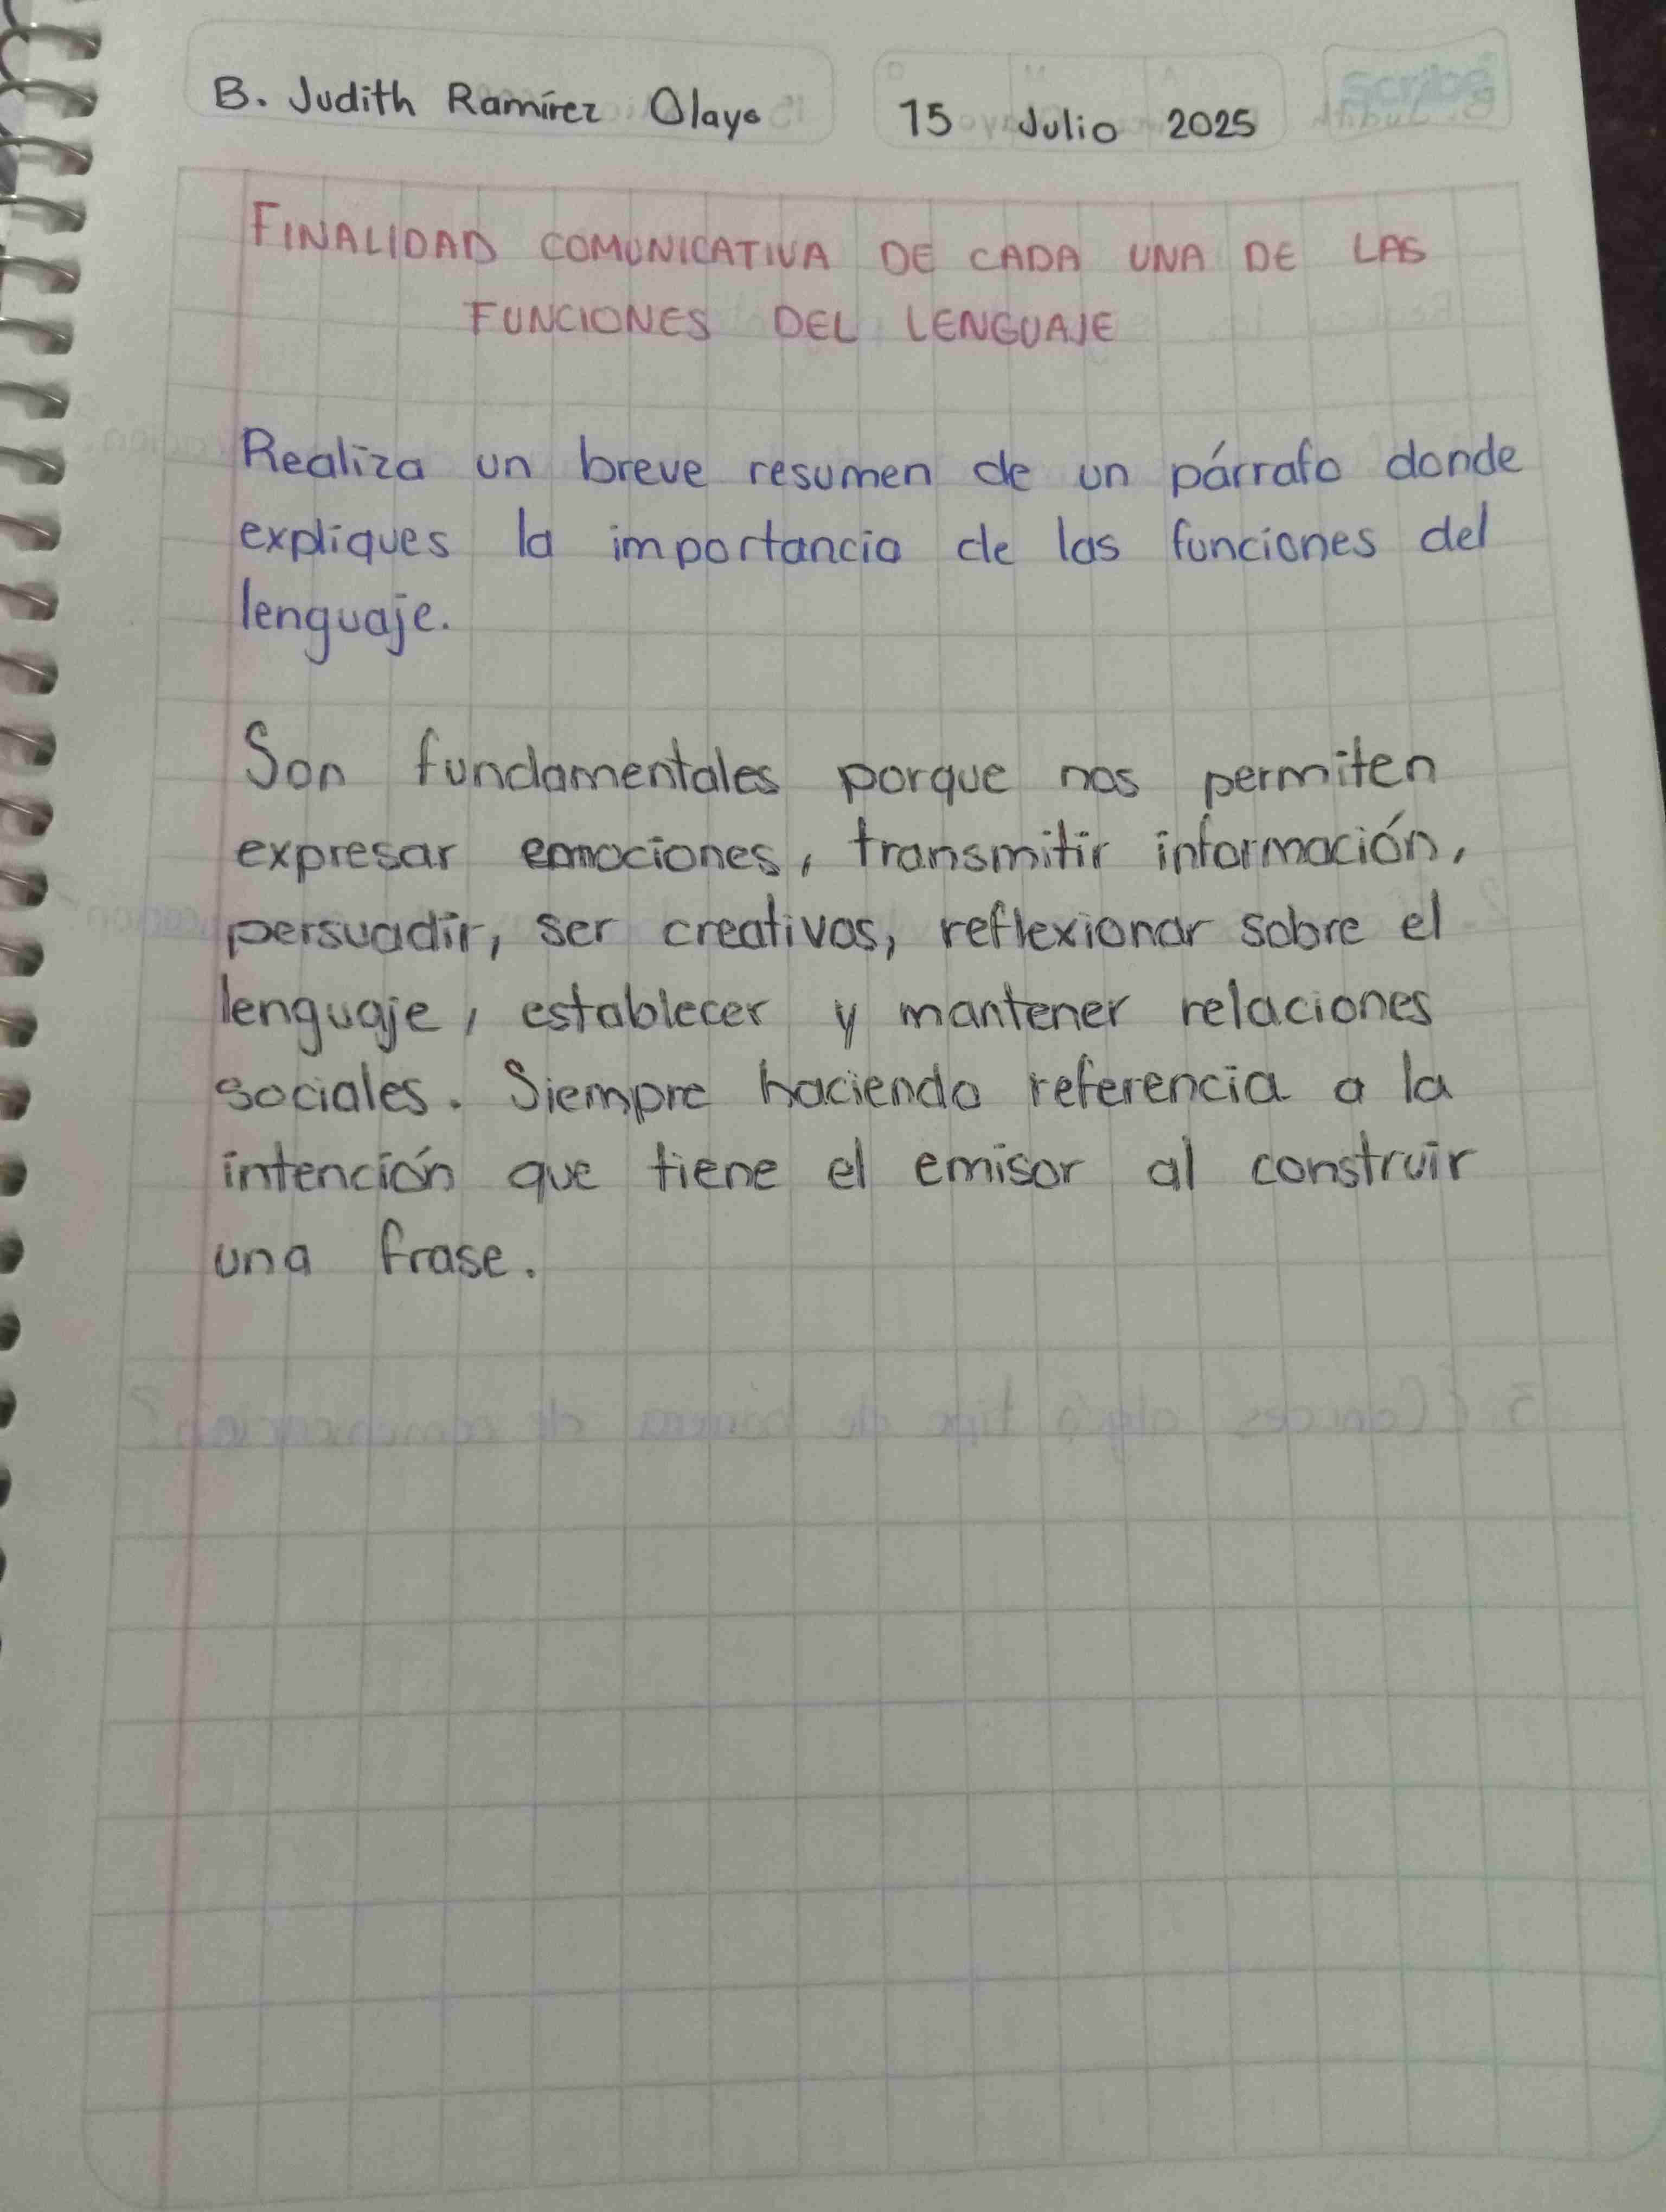 B. Judith Ramírez Olayo
15 Julio 2025
scribe
FINALIDAD COMUNICATIVA DE CADA UNA DE LAS
FUNCIONES DEL LENGUAJE
Realiza un breve resumen de un párrafo donde
expliques la importancia de las funciones del
lenguaje.
Son fundamentales porque nos permiten
expresar emociones, transmitir información,
persuadir, ser creativos, reflexionar sobre el
lenguaje, establecer y mantener relaciones
sociales. Siempre haciendo referencia a la
intención que tiene el emisor al construir
una frase.